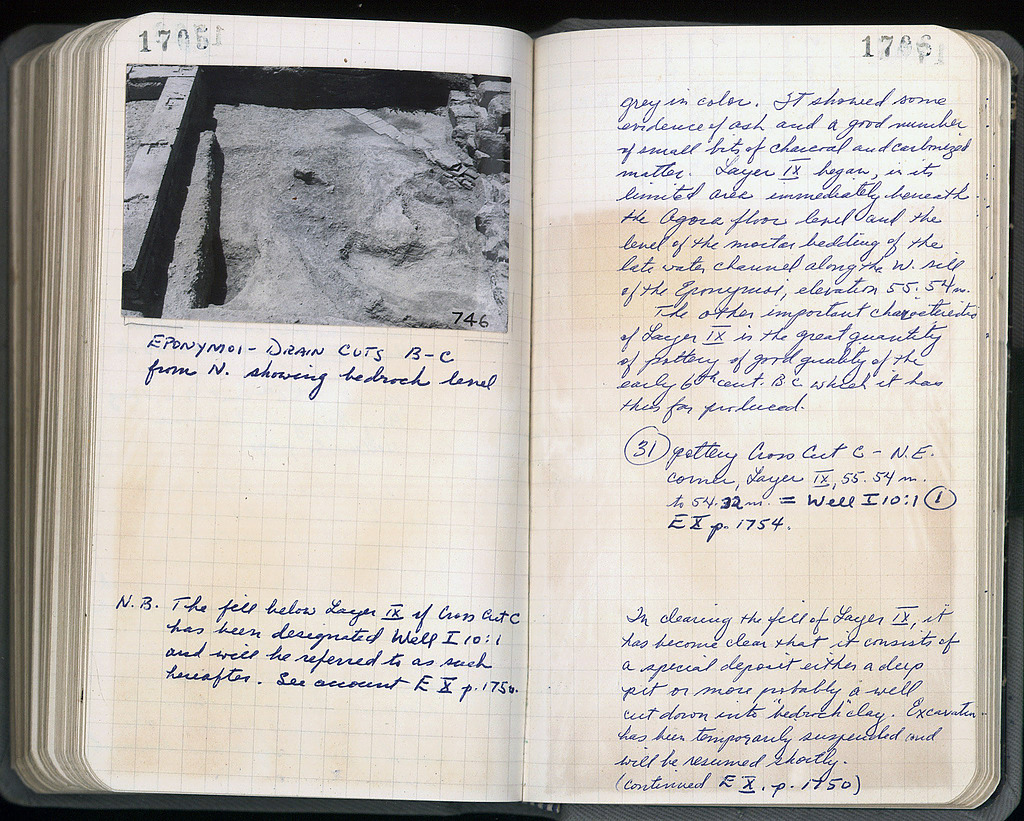 1705
746
EPONYMOI - DRAIN CUTS B-C
from N. showing bedrock level
N.B. The fill below Layer IX of Cross Cut C
has been designated Well I 10:1
and will be referred to as such
hereafter. See account E X p. 1750.
1706
grey in color. It showed some
evidence of ash and a good number
of small bits of charcoal and carbonized
matter. Layer IX began, in its
limited area immediately beneath
the Agora floor level and the
level of the mortar bedding of the
late water channel along the W. sill
of the Eponymoi, elevation 55.54 m.
The other important characteristics
of Layer IX is the great quantity
of pottery of good quality of the
early 6th cent. BC which it has
thus far produced.
31 pottery Cross Cut C - N.E.
corner, Layer IX, 55.54 m.
to 54.32 m. = Well I 10:1 1
E X p. 1754.
In clearing the fill of Layer IX, it
has become clear that it consists of
a special deposit either a deep
pit or more probably a well
cut down into "bedrock" clay. Excavation
has been temporarily suspended and
will be resumed shortly.
(continued E X, p. 1750)